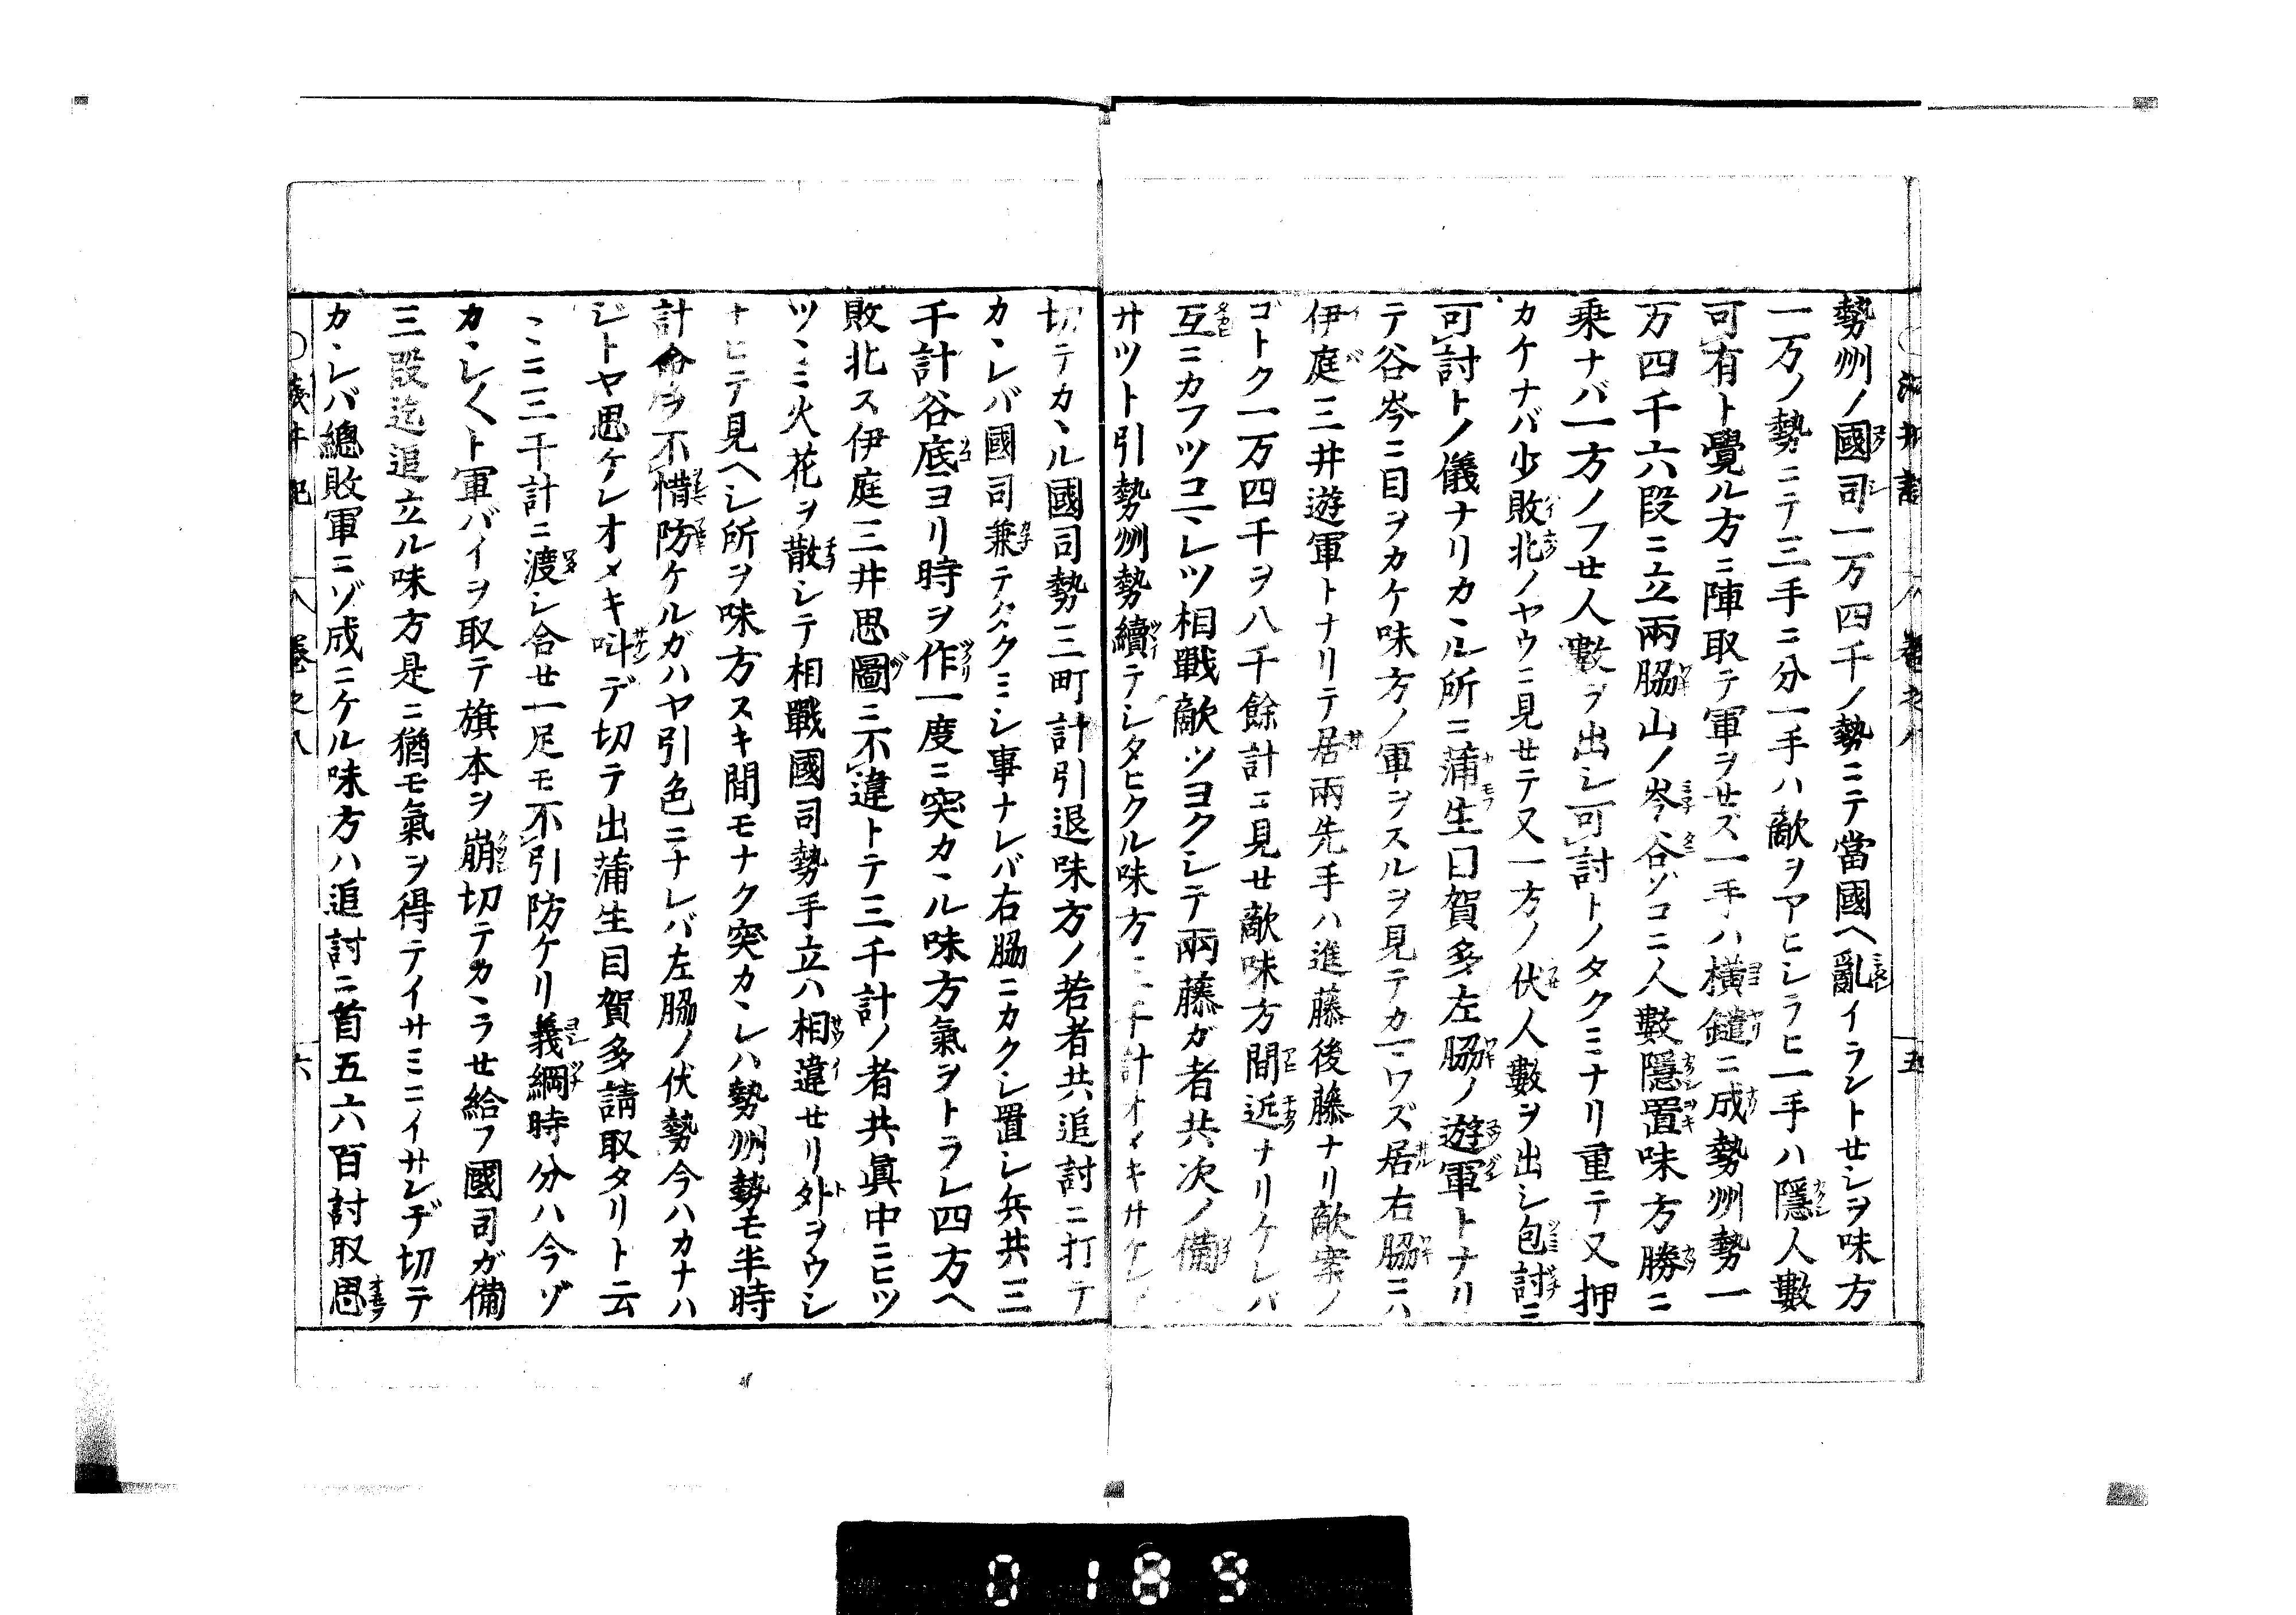 勢州ノ國司一万四千ノ勢ニテ當國ヘ亂イラントセシヲ味方
一万ノ勢ニテ三手ニ分一手ハ敵ヲアヒシラヒ一手ハ隱人數
可有ト覺ル方ニ陣取テ軍ヲセズ一手ハ橫鑓ニ成勢州勢一
万四千六段ニ立兩脇山ノ岑谷ソコニ人數隱置味方勝ニ
乗ナバ一方ノフせ人數ヲ出シ可討トノタクミナリ重テ又押
カケナバ少敗北ノヤウニ見せテ又一方ノ伏人數ヲ出シ包討ニ
可討トノ儀ナリカヽル所ニ蒲生日賀多左脇ノ遊軍トナリ
テ谷岑ニ目ヲカケ味方ノ軍ヲスルヲ見テカマワズ居右脇ニハ
伊庭三井遊軍トナリテ居兩先手ハ進藤後藤ナリ敵案ノ
ゴトク一万四千ヲ八千餘計ニ見せ敵味方間近ナリケレバ
互ニカフツコミレツ相戰敵ツヨクシテ兩藤ガ者共次ノ備
サツト引勢州勢續テシタヒクル味方二千計オメキサケンデ
切テカヽル國司勢三町計引退味方ノ若者共追討ニ打テ
カヽレバ國司兼テタクミシ事ナレバ右脇ニカクレ置シ兵共三
千計谷底ヨリ時ヲ作一度ニ突カヽル味方氣ヲトラレ四方ヘ
敗北ス伊庭三井思圖ニ不違トテ三千計ノ者共眞中ニヒツ
ツヽミ火花ヲ散シテ相戰國司勢手立ハ相違せリ外ヲウシ
ナヒテ見ヘシ所ヲ味方スキ間モナク突カヽレハ勢州勢モ半時
計命ヲ不惜防ケルガハヤ引色ニナレバ左脇ノ伏勢今ハカナハ
ジトヤ思ケレオメキ叫デ切テ出蒲生目賀多請取タリト云
ヽニ三千計ニ渡シ合せ一足モ不引防ケリ義綱時分ハ今ゾ
カヽレ〳〵ト軍バイヲ取テ旗本ヲ崩切テカヽラせ給フ國司ガ備
三段迄追立ル味方是ニ猶モ氣ヲ得テイサミニイサンデ切テ
カヽレバ總敗軍ニゾ成ニケル味方ハ追討ニ首五六百討取思